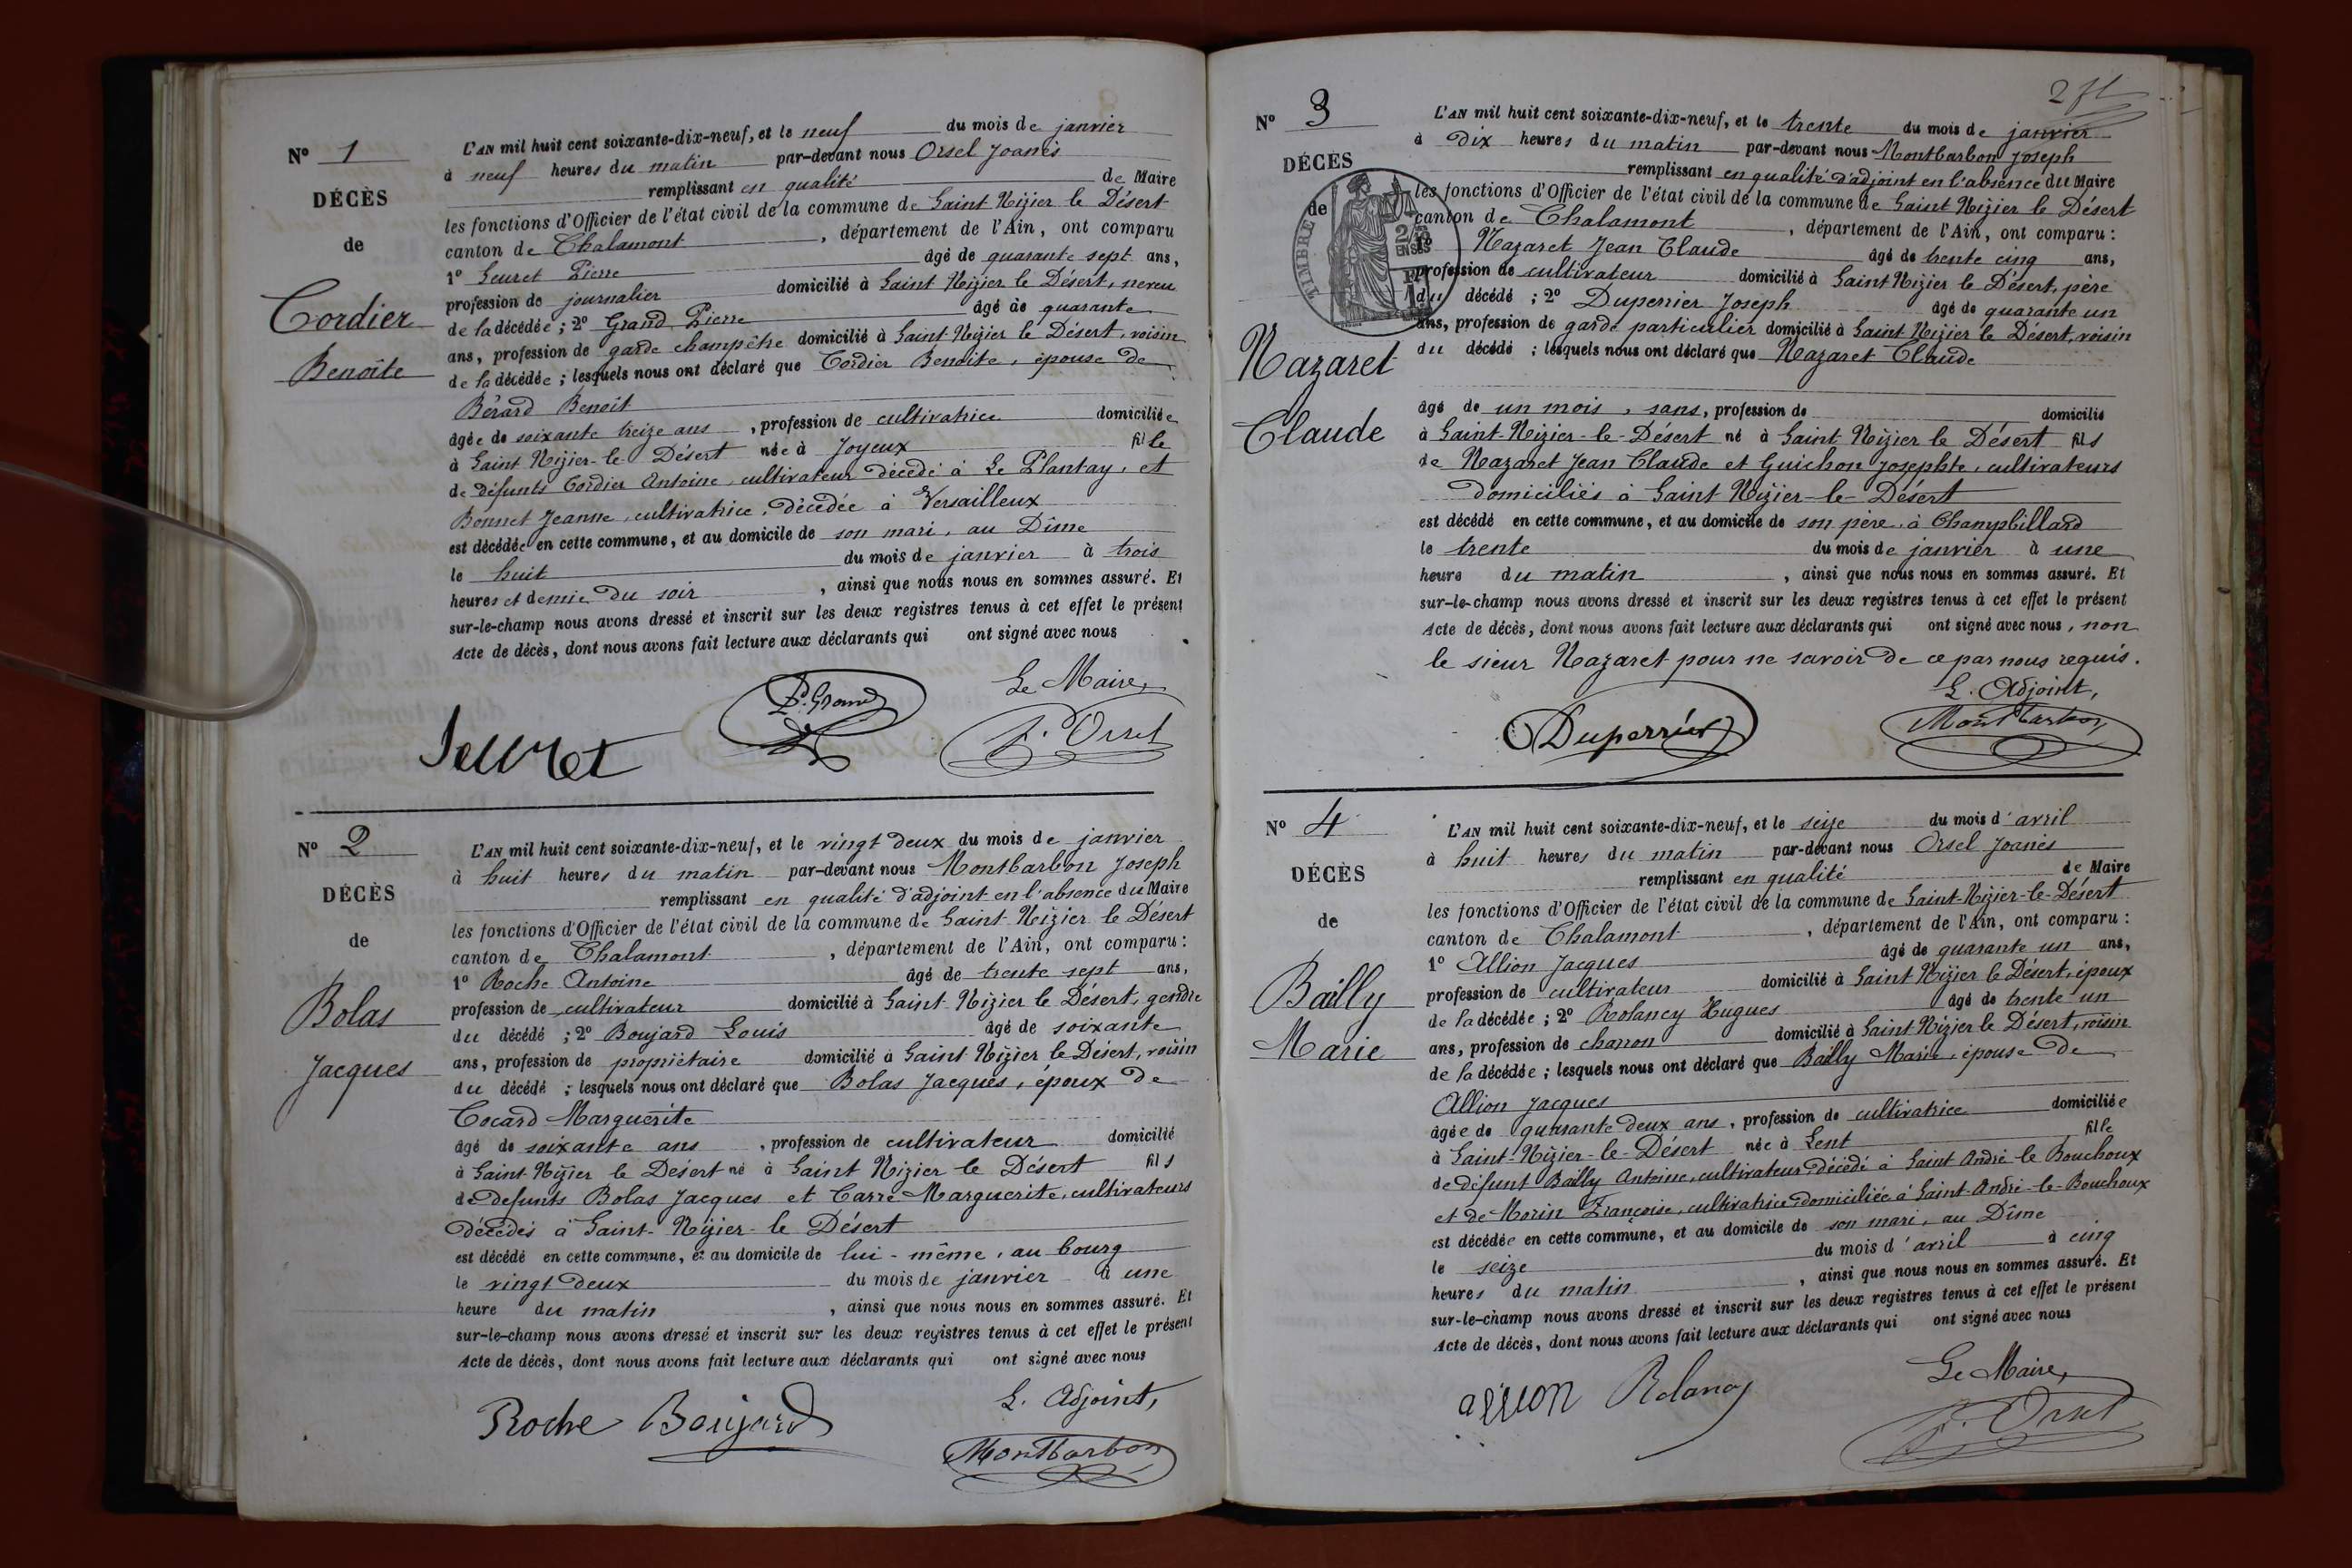 Nº 1
DÉCÈS
de
Cordier
Benoîte
L'AN mil huit cent soixante-dix-neuf, et le neuf du mois de janvier
à neuf heures du matin par-devant nous Orsel Joanès
remplissant en qualité de Maire
les fonctions d'Officier de l'état civil de la commune de Saint Nizier le Désert
canton de Chalamont, département de l'Ain, ont comparu
1º Seuret Pierre âgé de quarante sept ans,
profession de journalier domicilié à Saint Nizier le Désert, neveu
de la décédée ; 2º Grand Pierre âgé de quarante
ans, profession de garde champêtre domicilié à Saint Nizier le Désert, voisin
de la décédée ; lesquels nous ont déclaré que Cordier Benoîte, épouse de
Bérard Benoit
âgée de soixante treize ans, profession de cultivatrice domiciliée
à Saint Nizier-le-Désert née à Joyeux fille
de défunts Cordier Antoine, cultivateur décédé à Le Plantay, et
Bonnet Jeanne, cultivatrice, décédée à Versailleux
est décédée en cette commune, et au domicile de son mari, au Dîme
le huit du mois de janvier à trois
heures et demie du soir, ainsi que nous nous en sommes assuré. Et
sur-le-champ nous avons dressé et inscrit sur les deux registres tenus à cet effet le présent
Acte de décès, dont nous avons fait lecture aux déclarants qui ont signé avec nous
Le Maire,
Seuret P. Grand J. Orsel
Nº 2
DÉCÈS
de
Bolas
Jacques
L'AN mil huit cent soixante-dix-neuf, et le vingt deux du mois de janvier
à huit heures du matin par-devant nous Montbarbon Joseph
remplissant en qualité d'adjoint en l'absence du Maire
les fonctions d'Officier de l'état civil de la commune de Saint Nizier le Désert
canton de Chalamont, département de l'Ain, ont comparu :
1º Roche Antoine âgé de trente sept ans,
profession de cultivateur domicilié à Saint Nizier le Désert, gendre
du décédé ; 2º Boujard Louis âgé de soixante
ans, profession de propriétaire domicilié à Saint Nizier le Désert, voisin
du décédé ; lesquels nous ont déclaré que Bolas Jacques, époux de
Cocard Marguerite
âgé de soixante ans, profession de cultivateur domicilié
à Saint Nizier le Désert né à Saint Nizier le Désert fils
de défunts Bolas Jacques et Carre Marguerite, cultivateurs
décédés à Saint-Nizier-le Désert
est décédé en cette commune, et au domicile de lui-même, au bourg
le vingt deux du mois de janvier à une
heure du matin, ainsi que nous nous en sommes assuré. Et
sur-le-champ nous avons dressé et inscrit sur les deux registres tenus à cet effet le présent
Acte de décès, dont nous avons fait lecture aux déclarants qui ont signé avec nous
L. Adjoint,
Roche Boujard Montbarbon
Nº 3
DÉCÈS
de
Nazaret
Claude
TIMBRE
L'AN mil huit cent soixante-dix-neuf, et le trente du mois de janvier
à dix heures du matin par-devant nous Montbarbon Joseph
remplissant en qualité d'adjoint en l'absence du Maire
les fonctions d'Officier de l'état civil de la commune de Saint Nizier le Désert
canton de Chalamont, département de l'Ain, ont comparu :
1º Nazaret Jean Claude âgé de trente cinq ans,
profession de cultivateur domicilié à Saint Nizier le Désert, père
du décédé ; 2º Duperrier Joseph âgé de quarante un
ans, profession de garde particulier domicilié à Saint Nizier le Désert, voisin
du décédé ; lesquels nous ont déclaré que Nazaret Claude
âgé de un mois, sans, profession de domicilié
à Saint-Nizier-le-Désert né à Saint Nizier le Désert fils
de Nazaret Jean Claude et Guichon Josephte, cultivateurs
domiciliés à Saint Nizier-le-Désert
est décédé en cette commune, et au domicile de son père, à Champbillard
le trente du mois de janvier à une
heure du matin, ainsi que nous nous en sommes assuré. Et
sur-le-champ nous avons dressé et inscrit sur les deux registres tenus à cet effet le présent
Acte de décès, dont nous avons fait lecture aux déclarants qui ont signé avec nous, non
le sieur Nazaret pour ne savoir de ce par nous requis.
L. Adjoint,
Duperrier Montbarbon
Nº 4
DÉCÈS
de
Bailly
Marie
L'AN mil huit cent soixante-dix-neuf, et le seize du mois d'avril
à huit heures du matin par-devant nous Orsel Joanès
remplissant en qualité de Maire
les fonctions d'Officier de l'état civil de la commune de Saint-Nizier-le-Désert
canton de Chalamont, département de l'Ain, ont comparu :
1º Allion Jacques âgé de quarante un ans,
profession de cultivateur domicilié à Saint Nizier le Désert, époux
de la décédée ; 2º Rolancy Hugues âgé de trente un
ans, profession de charron domicilié à Saint Nizier le Désert, voisin
de la décédée ; lesquels nous ont déclaré que Bailly Marie, épouse de
Allion Jacques
âgée de quarante deux ans, profession de cultivatrice domiciliée
à Saint-Nizier-le-Désert née à Lent fille
de défunt Bailly Antoine, cultivateur décédé à Saint André le Bouchoux
et de Morin Françoise, cultivatrice domiciliée à Saint-André-le-Bouchoux
est décédée en cette commune, et au domicile de son mari, au Dîme
le seize du mois d'avril à cinq
heures du matin, ainsi que nous nous en sommes assuré. Et
sur-le-champ nous avons dressé et inscrit sur les deux registres tenus à cet effet le présent
Acte de décès, dont nous avons fait lecture aux déclarants qui ont signé avec nous
Le Maire,
allion Rolancy J. Orsel